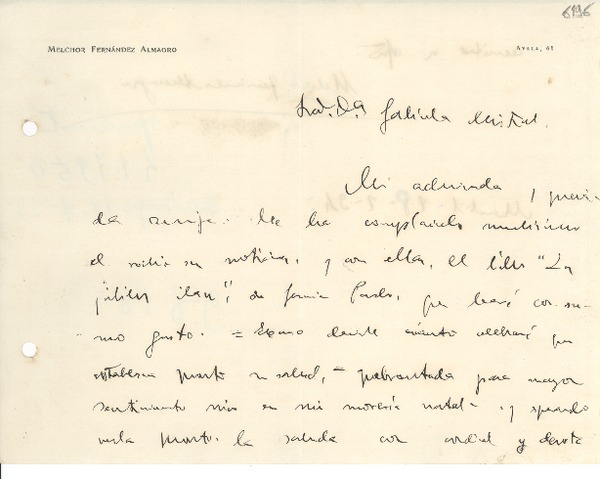 6196
MELCHOR FERNÁNDEZ ALMAGRO
AYALA, 61
Srd. Dª Gabriela Mistral.
Mi admirada y queri-
da amiga: Me ha complacido muchísimo
el recibir sus noticias, y con ellas, el libro "La
ilan", de García Pardo, que leeré con su-
mo gusto. = Excuso decirle cuánto celebraré que
restablezca pronto su salud, = quebrantada para mayor
sentimiento mío en mi morería natal = , y esperando
verla pronto. la saluda con cordial y devota